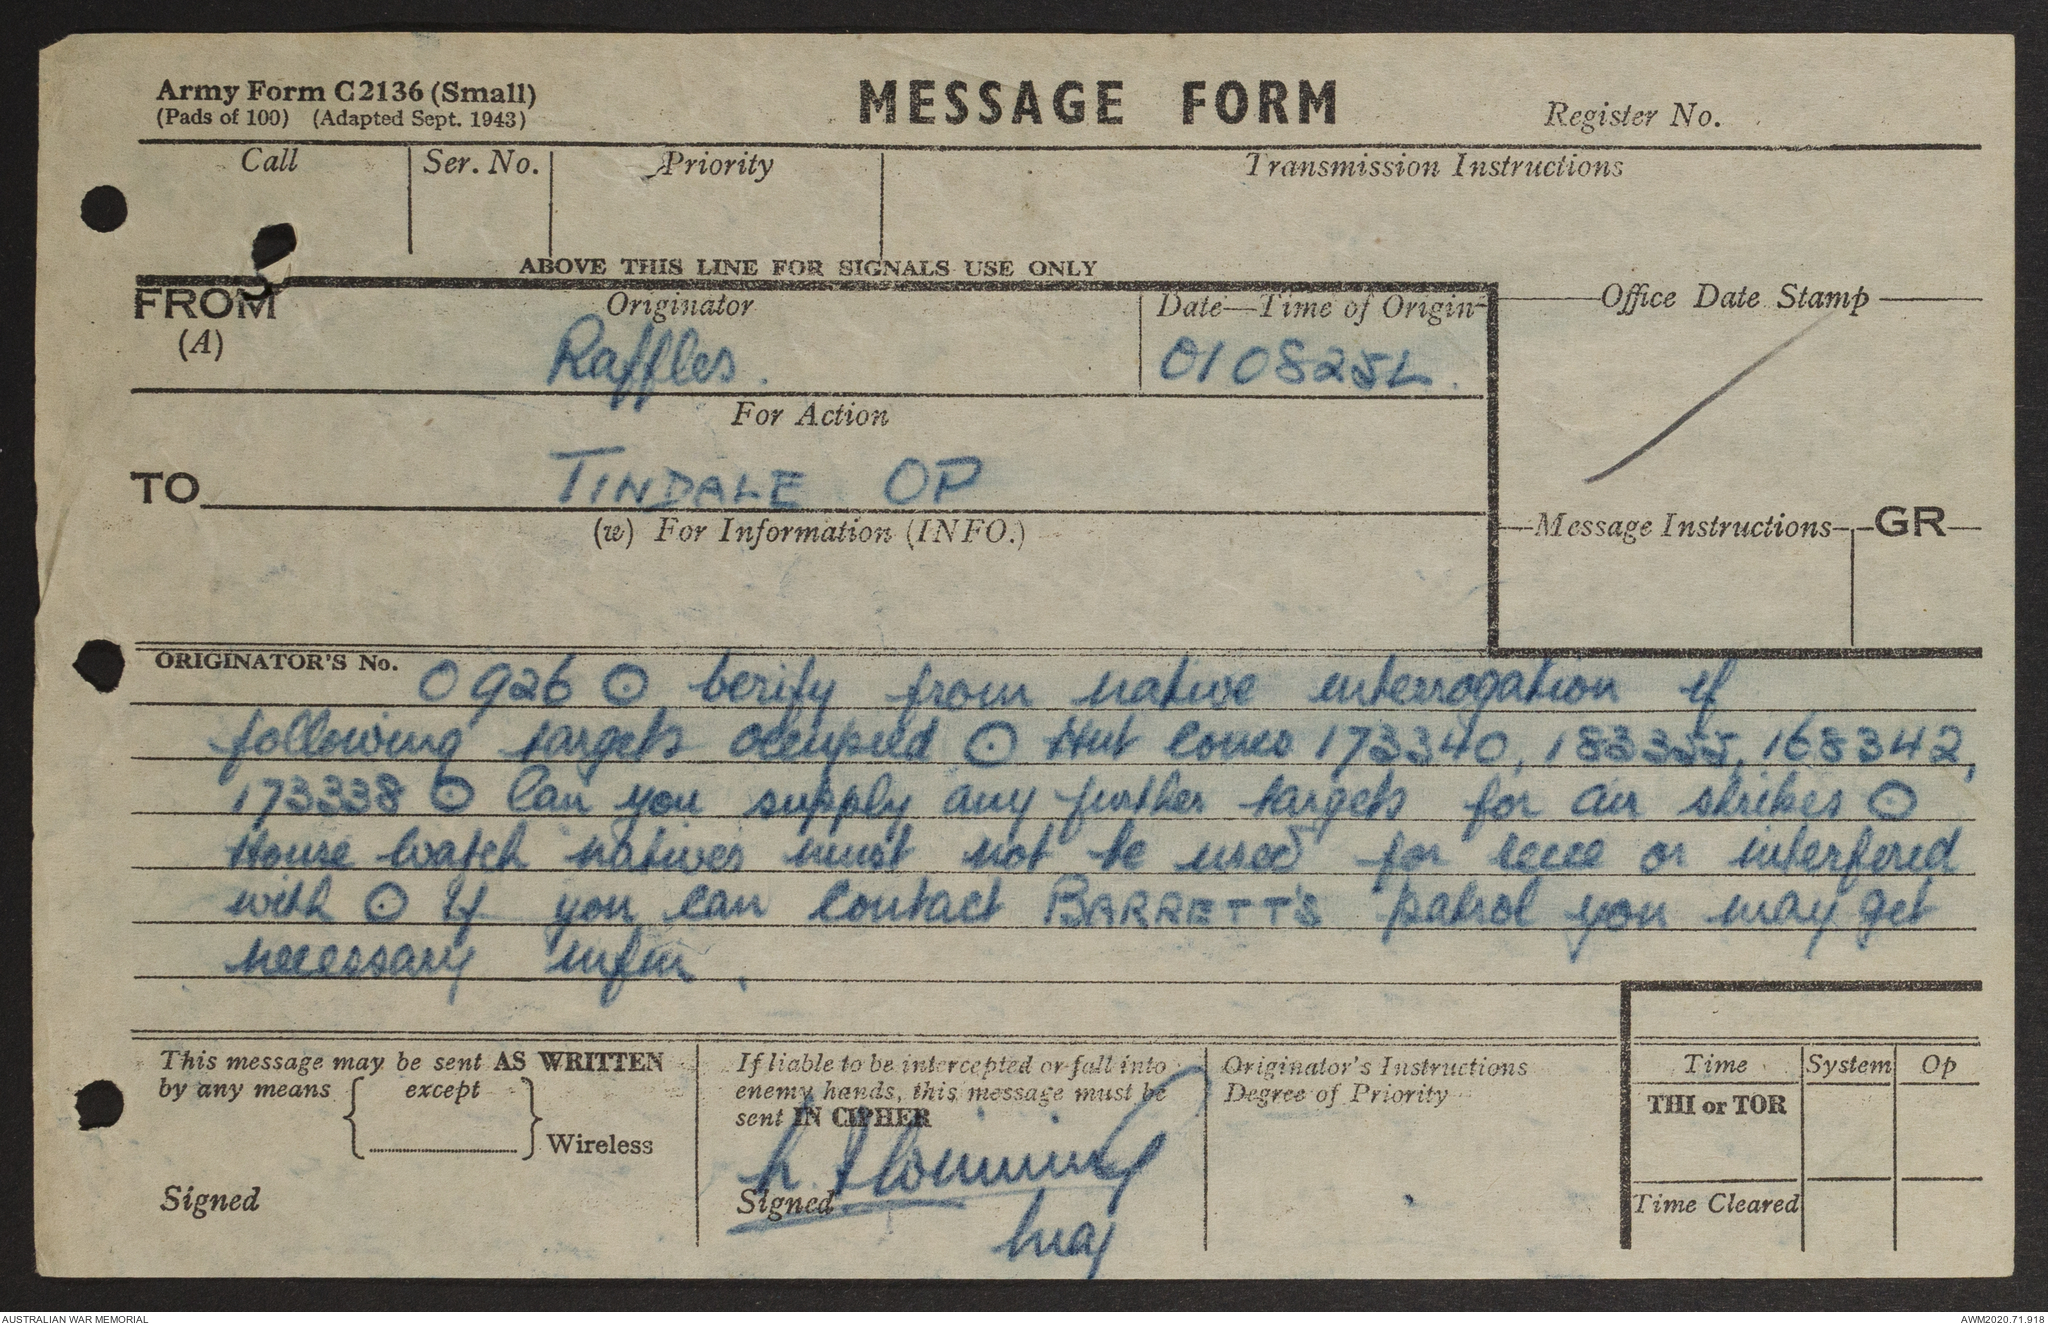 Army Form C2136 (Small)
(Pads of 100) (Adapted Sept. 1943)
MESSAGE FORM
Register No.
Call
Ser. No.
Priority
Transmission Instructions
ABOVE THIS LINE FOR SIGNALS USE ONLY
FROM
(A)
Originator
Raffles.
Date—Time of Origin
010825L.
Office Date Stamp
For Action
TO
TINDALE OP
(w) For Information (INFO.)
Message Instructions
GR
ORIGINATOR'S No.
0926 ⊙ Verify from native interrogation if
following targets occupied ⊙ Hut Cones 173340, 183355, 168342,
173338 ⊙ Can you supply any further targets for air strikes ⊙
House watch natives must not be used for recce or interfered
with ⊙ If you can contact BARRETT'S patrol you may get
necessary infm.
This message may be sent AS WRITTEN
by any means
except
Wireless
Signed
If liable to be intercepted or fall into
enemy hands, this message must be
sent IN CIPHER
Signed
Maj
Originator's Instructions
Degree of Priority
Time
System
Op
THI or TOR
Time Cleared
AUSTRALIAN WAR MEMORIAL
AWM2020.71.918